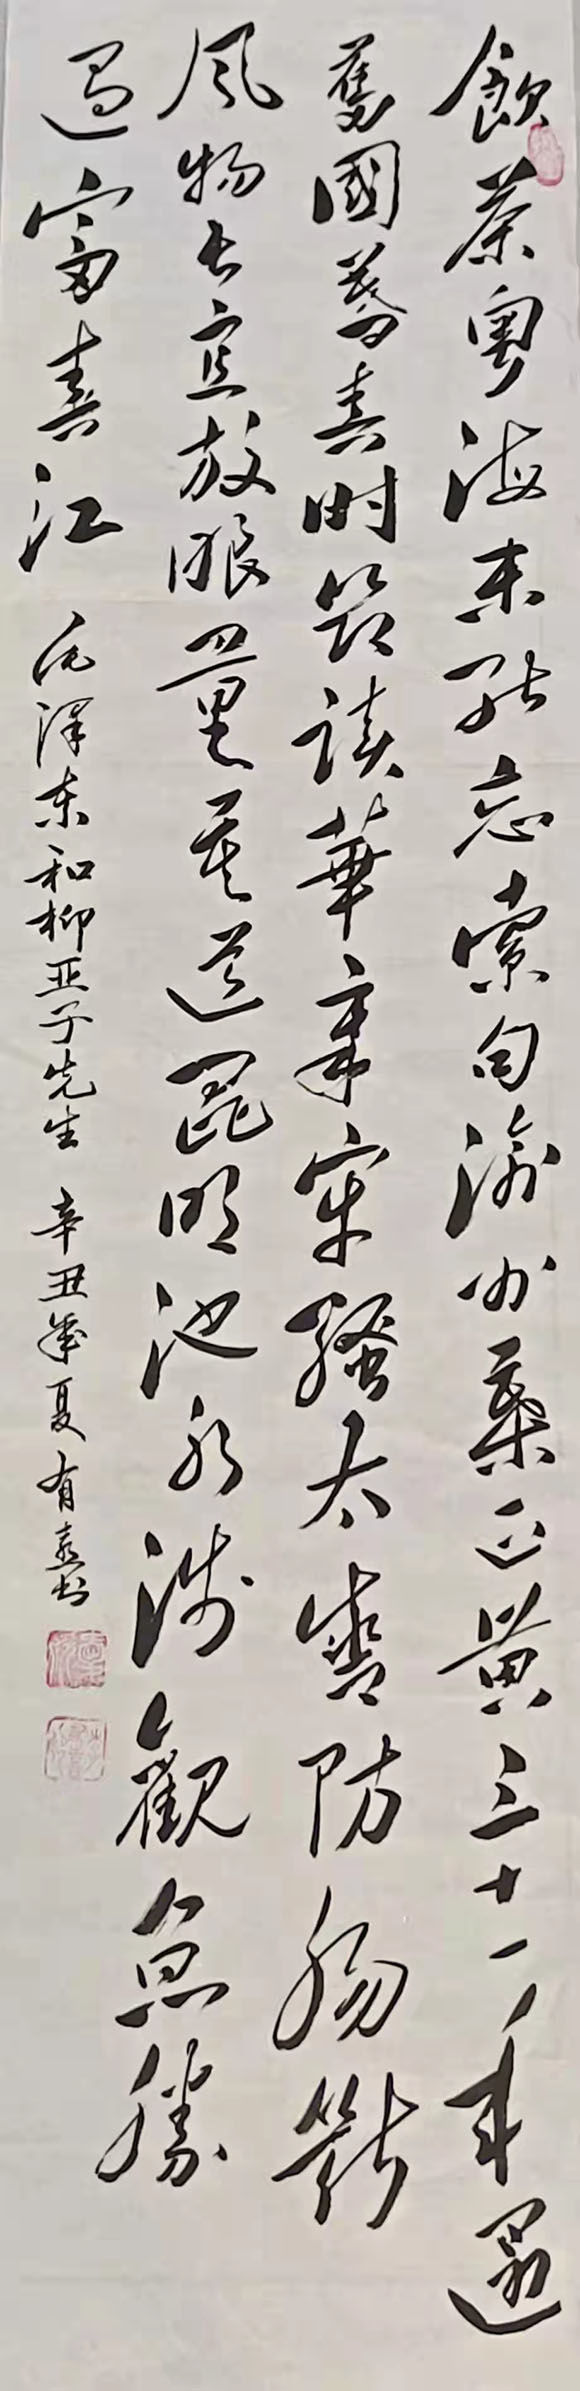 飲茶粵海未能忘索句渝州葉正黃三十一年還
舊國暮春時節讀華章牢騷太盛防腸斷
風物長宜放眼量莫道昆明池水淺觀魚勝
過富春江
毛澤东和柳亚子先生 辛丑年夏 有书